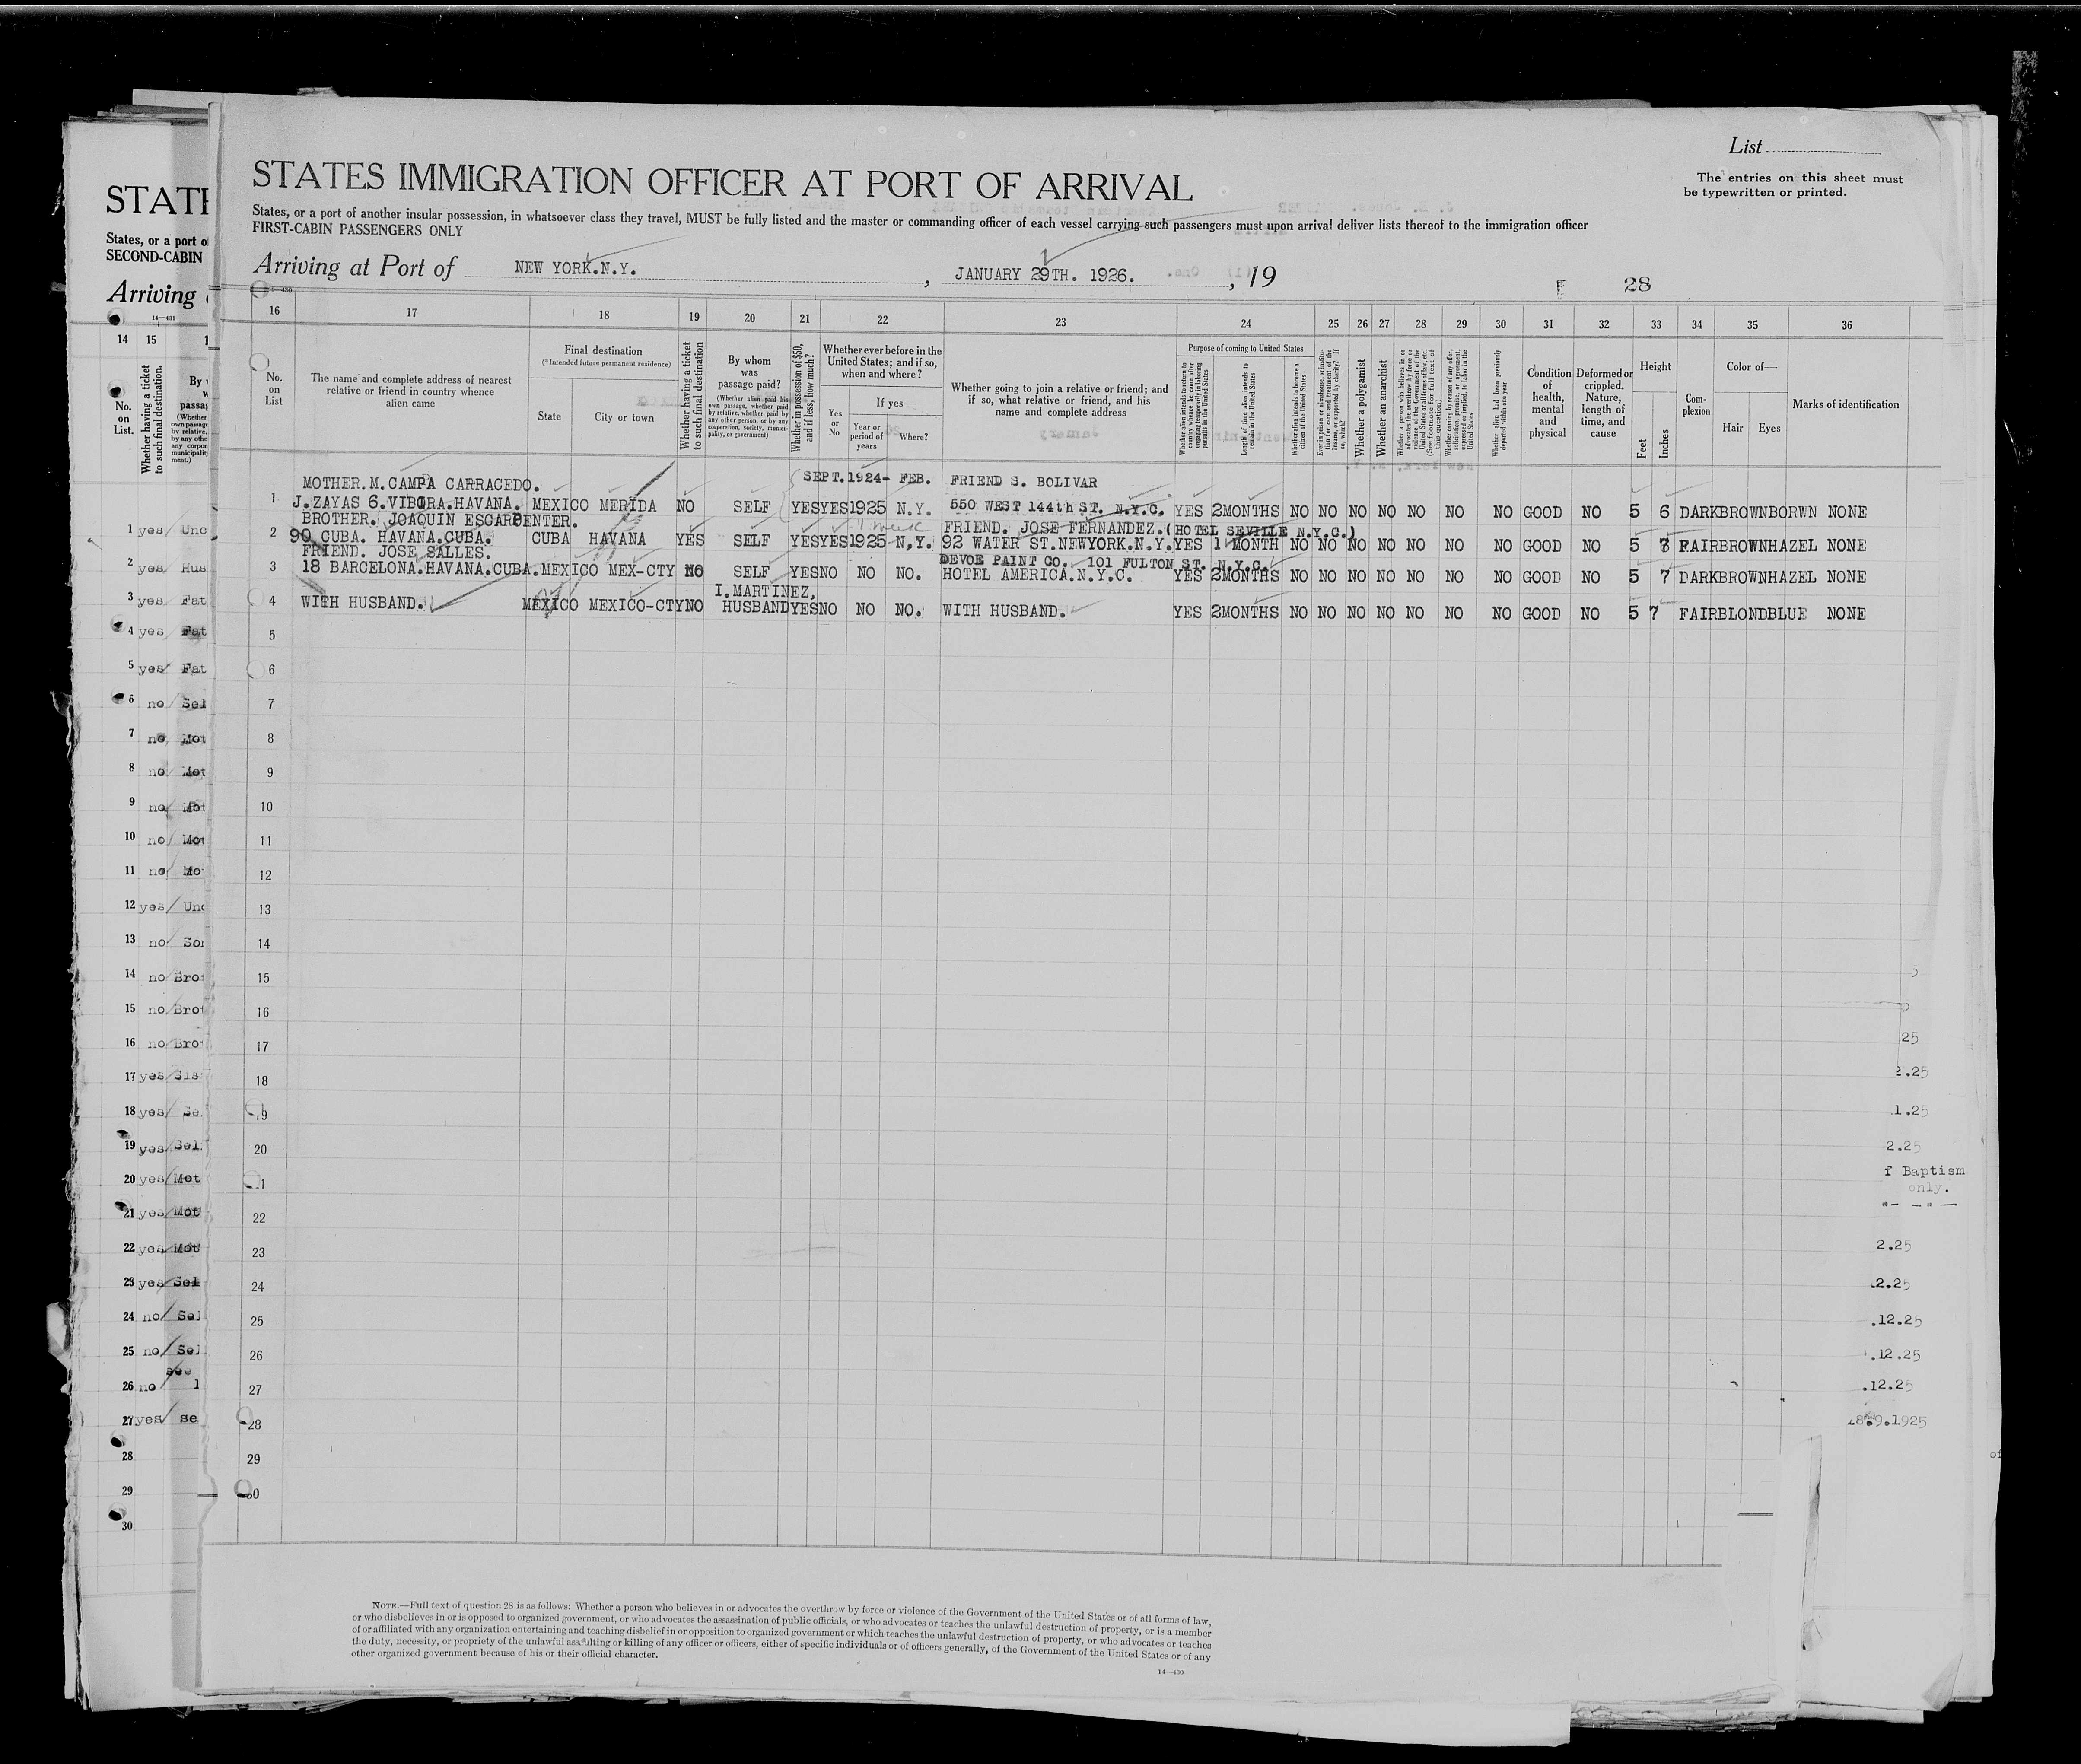 List
STATES IMMIGRATION OFFICER AT PORT OF ARRIVAL
The entries on this sheet must
be typewritten or printed.
States, or a port of another insular possession, in whatsoever class they travel, MUST be fully listed and the master or commanding officer of each vessel carrying such passengers must upon arrival deliver lists thereof to the immigration officer
FIRST-CABIN PASSENGERS ONLY
Arriving at Port of NEW YORK.N.Y. , JANUARY 29TH. 1926. , 19
28
16 17 18 19 20 21 22 23 24 25 26 27 28 29 30 31 32 33 34 35 36
No. on List
The name and complete address of nearest relative or friend in country whence alien came
Final destination
(*Intended future permanent residence)
State
City or town
Whether having a ticket to such final destination
By whom was passage paid?
(Whether alien paid his own passage, whether paid by relative, whether paid by any other person, or by any corporation, society, municipality, or government)
Whether in possession of $50, and if less, how much?
Whether ever before in the United States; and if so, when and where?
Yes or No
If yes—
Year or period of years
Where?
Whether going to join a relative or friend; and if so, what relative or friend, and his name and complete address
Purpose of coming to United States
Whether alien intends to return to country whence he came after engaging temporarily in laboring pursuits in the United States
Length of time alien intends to remain in the United States
Whether alien intends to become a citizen of the United States
Whether a polygamist
Whether an anarchist
Whether alien had been previously deported within one year
Condition of health, mental and physical
Deformed or crippled. Nature, length of time, and cause
Height
Feet
Inches
Complexion
Color of—
Hair
Eyes
Marks of identification
MOTHER.M.CAMPA CARRACEDO. SEPT.1924- FEB. FRIEND S. BOLIVAR
1 J.ZAYAS 6.VIBORA.HAVANA. MEXICO MERIDA NO SELF YES YES 1925 N.Y. 550 WEST 144th ST. N.Y.C. YES 2MONTHS NO NO NO NO NO NO NO GOOD NO 5 6 DARK BROWN BORWN NONE
BROTHER. JOAQUIN ESCARPENTER. 1 week FRIEND. JOSE FERNANDEZ.(HOTEL SEVILLE N.Y.C.)
2 90 CUBA. HAVANA.CUBA. CUBA HAVANA YES SELF YES YES 1925 N.Y. 92 WATER ST.NEWYORK.N.Y. YES 1 MONTH NO NO NO NO NO NO NO GOOD NO 5 8 FAIR BROWN HAZEL NONE
FRIEND. JOSE SALLES. DEVOE PAINT CO. 101 FULTON ST. N.Y.C.
3 18 BARCELONA.HAVANA.CUBA. MEXICO MEX-CTY NO SELF YES NO NO NO. HOTEL AMERICA.N.Y.C. YES 2MONTHS NO NO NO NO NO NO NO GOOD NO 5 7 DARK BROWN HAZEL NONE
I.MARTINEZ,
4 WITH HUSBAND. MEXICO MEXICO-CTY NO HUSBAND YES NO NO NO. WITH HUSBAND. YES 2MONTHS NO NO NO NO NO NO NO GOOD NO 5 7 FAIR BLOND BLUE NONE
5
6
7
8
9
10
11
12
13
14
15
16
17
18
19
20
22
23
24
25
26
27
28
29
NOTE.—Full text of question 28 is as follows: Whether a person who believes in or advocates the overthrow by force or violence of the Government of the United States or of all forms of law,
or who disbelieves in or is opposed to organized government, or who advocates the assassination of public officials, or who advocates or teaches the unlawful destruction of property, or is a member
of or affiliated with any organization entertaining and teaching disbelief in or opposition to organized government or which teaches the unlawful destruction of property, or who advocates or teaches
the duty, necessity, or propriety of the unlawful assaulting or killing of any officer or officers, either of specific individuals or of officers generally, of the Government of the United States or of any
other organized government because of his or their official character.
14—430
States, or a port o
SECOND-CABIN
Arriving
14—431
14 15
No. on List.
Whether having a ticket to such final destination.
1 yes
2 yes
3 yes
4 yes
5 yes
6 no
7 no
8 no
9 no
10 no
11 no
12 yes
13 no
14 no
15 no
16 no
17 yes
18 yes
19 yes
20 yes
21 yes
22 yes
23 yes
24 no
25 no
26 no
27 yes
28
29
30
25
2.25
1.25
2.25
f Baptism
only.
2.25
.2.25
.12.25
.12.25
.12.25
.9.1925